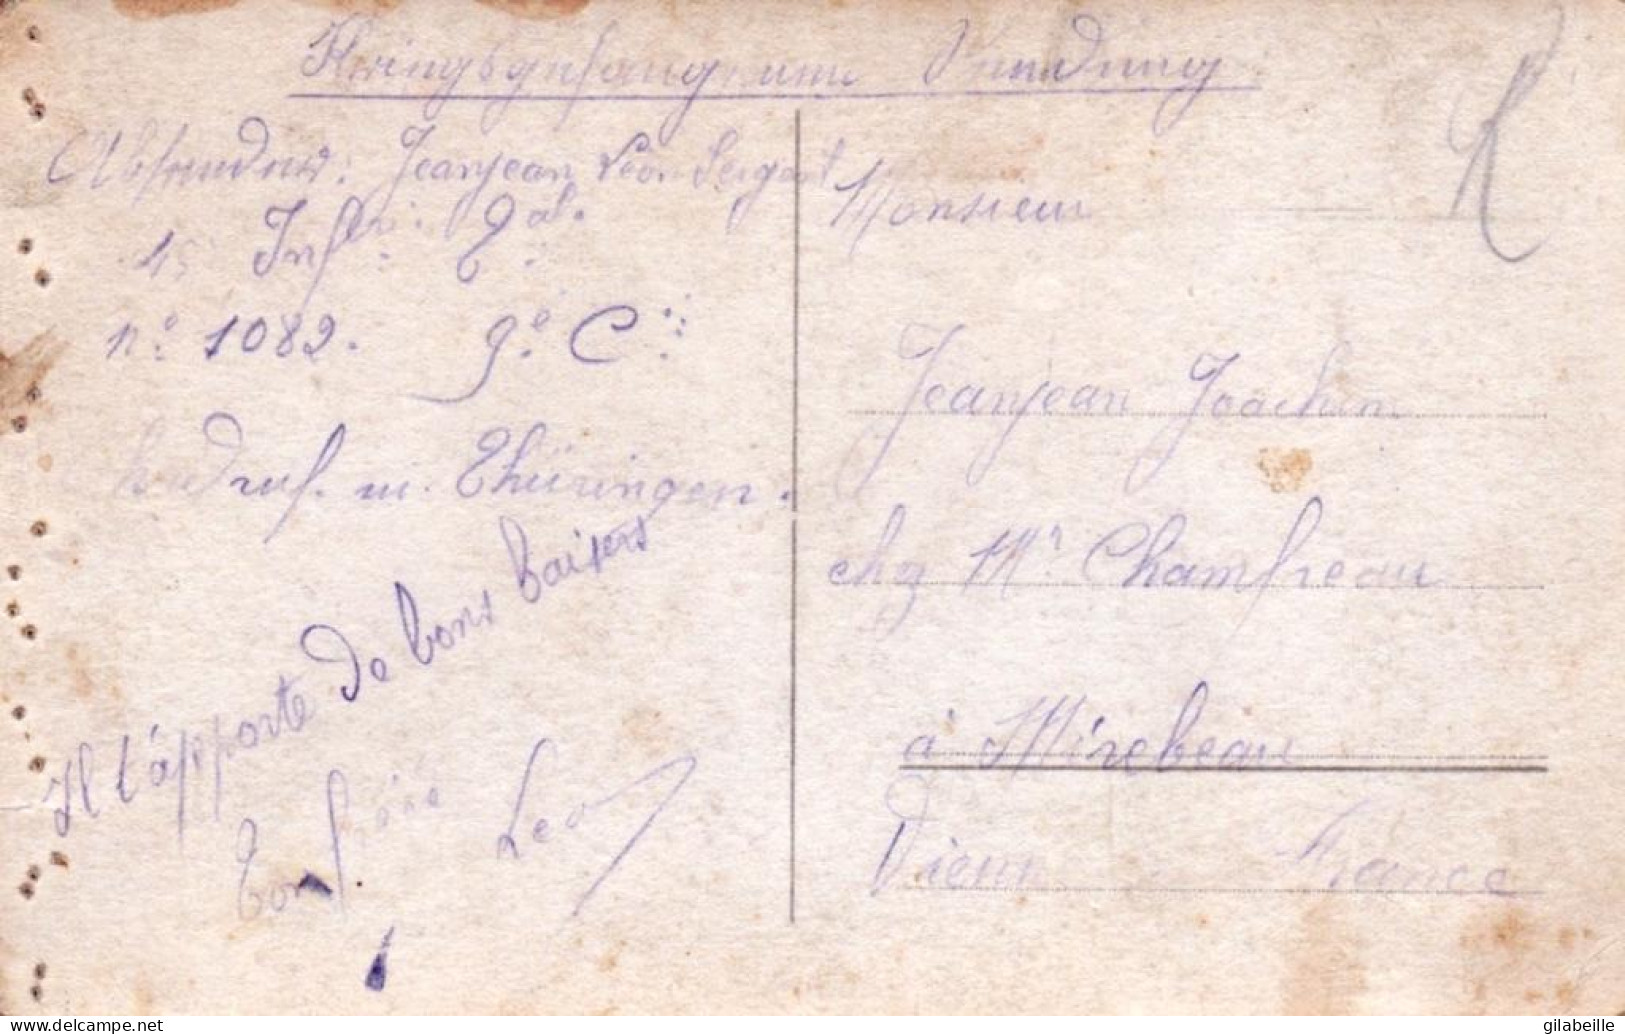 Kriegsgefangenen Sendung
Absender: Jeanjean Léon Sergent
15 Inf
n° 1082. 9e Cie
Ohrdruf. in. Thüringen.
Il t'apporte de bons baisers
Ton frère Leon
Monsieur
Jeanjean Joachim
chez Mr Chamfreau
à Mirebeau
Vienne France
gilabeille